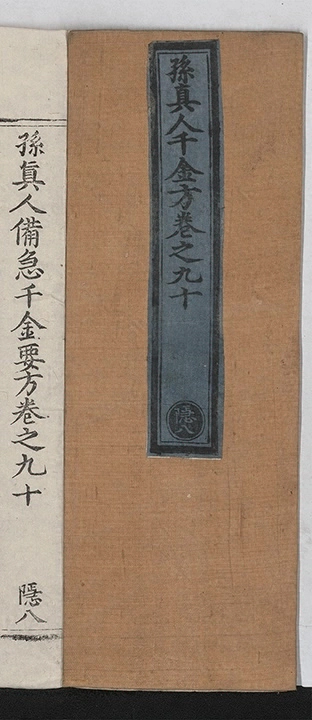 孫真人千金方卷之九十
隱八
孫眞人備急千金要方卷之九十
隱八